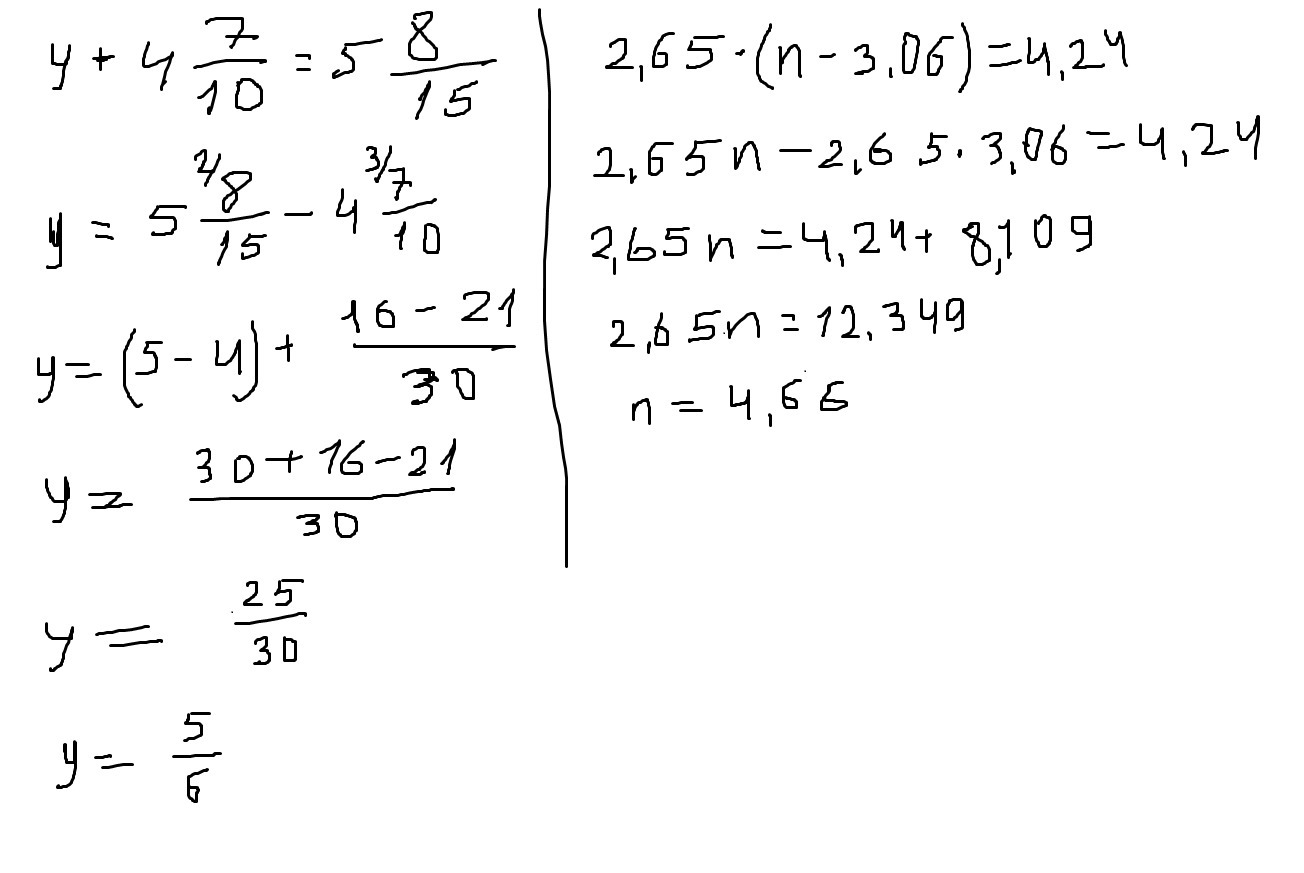 y + 4 7/10 = 5 8/15
y = 5 2/8/15 - 4 3/7/10
y = (5 - 4) + 16 - 21/30
y = 30 + 16 - 21/30
y = 25/30
y = 5/6
2,65 · (n - 3,06) = 4,24
2,65n - 2,65 · 3,06 = 4,24
2,65n = 4,24 + 8,109
2,65n = 12,349
n = 4,66